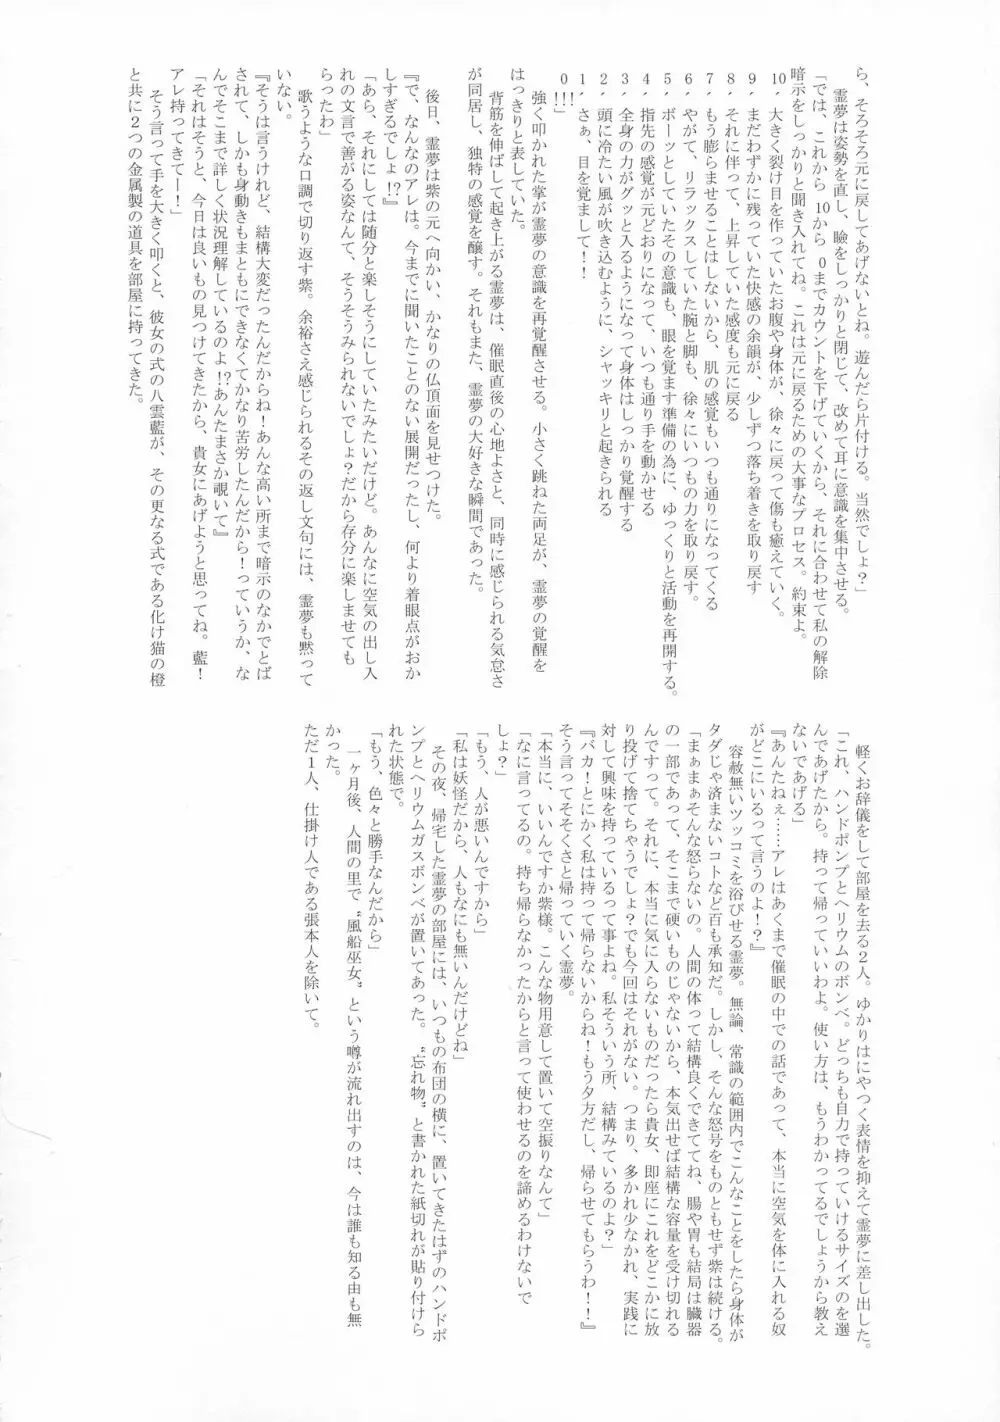 ら、そろそろ元に戻してあげないとね。遊んだら片付ける。当然でしょ？」
　霊夢は姿勢を直し、瞼をしっかりと閉じて、改めて耳に意識を集中させる。
「では、これから10から0までカウントを下げていくから、それに合わせて私の解除
暗示をしっかりと聞き入れてね。これは元に戻るための大事なプロセス。約束よ。
10、大きく裂け目を作っていたお腹や身体が、徐々に戻って傷も癒えていく。
9、まだわずかに残っていた快感の余韻が、少しずつ落ち着きを取り戻す
8、それに伴って、上昇していた感度も元に戻る
7、もう膨らませることはしないから、肌の感覚もいつも通りになってくる
6、やがて、リラックスしていた腕と脚も、徐々にいつもの力を取り戻す。
5、ボーッとしていたその意識も、眼を覚ます準備の為に、ゆっくりと活動を再開する。
4、指先の感覚が元どおりになって、いつも通り手を動かせる
3、全身の力がグッと入るようになって身体はしっかり覚醒する
2、頭に冷たい風が吹き込むように、シャッキリと起きられる
1、さぁ、目を覚まして！！
0!!!」
　強く叩かれた掌が霊夢の意識を再覚醒させる。小さく跳ねた両足が、霊夢の覚醒を
はっきりと表していた。
　背筋を伸ばして起き上がる霊夢は、催眠直後の心地よさと、同時に感じられる気怠さ
が同居し、独特の感覚を醸す。それもまた、霊夢の大好きな瞬間であった。
　後日、霊夢は紫の元へ向かい、かなりの仏頂面を見せつけた。
『で、なんなのアレは。今までに聞いたことのない展開だったし、何より着眼点がおか
しすぎるでしょ!?』
「あら、それにしては随分と楽しそうにしていたみたいだけど。あんなに空気の出し入
れの文言で善がる姿なんて、そうそうみられないでしょ？だから存分に楽しませても
らったわ」
　歌うような口調で切り返す紫。余裕さえ感じられるその返し文句には、霊夢も黙って
いない。
『そうは言うけれど、結構大変だったんだからね！あんな高い所まで暗示のなかでとば
されて、しかも身動きもまともにできなくてかなり苦労したんだから！っていうか、な
んでそこまで詳しく状況理解しているのよ!?あんたまさか覗いて』
「それはそうと、今日は良いもの見つけてきたから、貴女にあげようと思ってね。藍！
アレ持ってきてー！」
　そう言って手を大きく叩くと、彼女の式の八雲藍が、その更なる式である化け猫の橙
と共に2つの金属製の道具を部屋に持ってきた。
　軽くお辞儀をして部屋を去る2人。ゆかりはにやつく表情を抑えて霊夢に差し出した。
「これ、ハンドポンプとヘリウムのボンベ。どっちも自力で持っていけるサイズのを選
んであげたから。持って帰っていいわよ。使い方は、もうわかってるでしょうから教え
ないであげる」
『あんたねぇ……アレはあくまで催眠の中での話であって、本当に空気を体に入れる奴
がどこにいるって言うのよ！？』
　容赦無いツッコミを浴びせる霊夢。無論、常識の範囲内でこんなことをしたら身体が
タダじゃ済まないコトなど百も承知だ。しかし、そんな怒号をものともせず紫は続ける。
「まぁまぁそんな怒らないの。人間の体って結構良くできててね、腸や胃も結局は臓器
の一部であって、そこまで硬いものじゃないから、本気出せば結構な容量を受け切れる
んですって。それに、本当に気に入らないものだったら貴女、即座にこれをどこかに放
り投げて捨てちゃうでしょ？でも今回はそれがない。つまり、多かれ少なかれ、実践に
対して興味を持っているって事よね。私そういう所、結構みているのよ？」
『バカ！とにかく私は持って帰らないからね！もう夕方だし、帰らせてもらうわ！！』
そう言ってそそくさと帰っていく霊夢。
「本当に、いいんですか紫様。こんな物用意して置いて空振りなんて」
「なに言ってるの。持ち帰らなかったからと言って使わせるのを諦めるわけないで
しょ？」
「もう、人が悪いんですから」
「私は妖怪だから、人もなにも無いんだけどね」
　その夜、帰宅した霊夢の部屋には、いつもの布団の横に、置いてきたはずのハンドポ
ンプとヘリウムガスボンベが置いてあった。〝忘れ物〟と書かれた紙切れが貼り付けら
れた状態で。
「もう、色々と勝手なんだから」
　一ヶ月後、人間の里で〝風船巫女〟という噂が流れ出すのは、今は誰も知る由も無
かった。
ただ1人、仕掛け人である張本人を除いて。